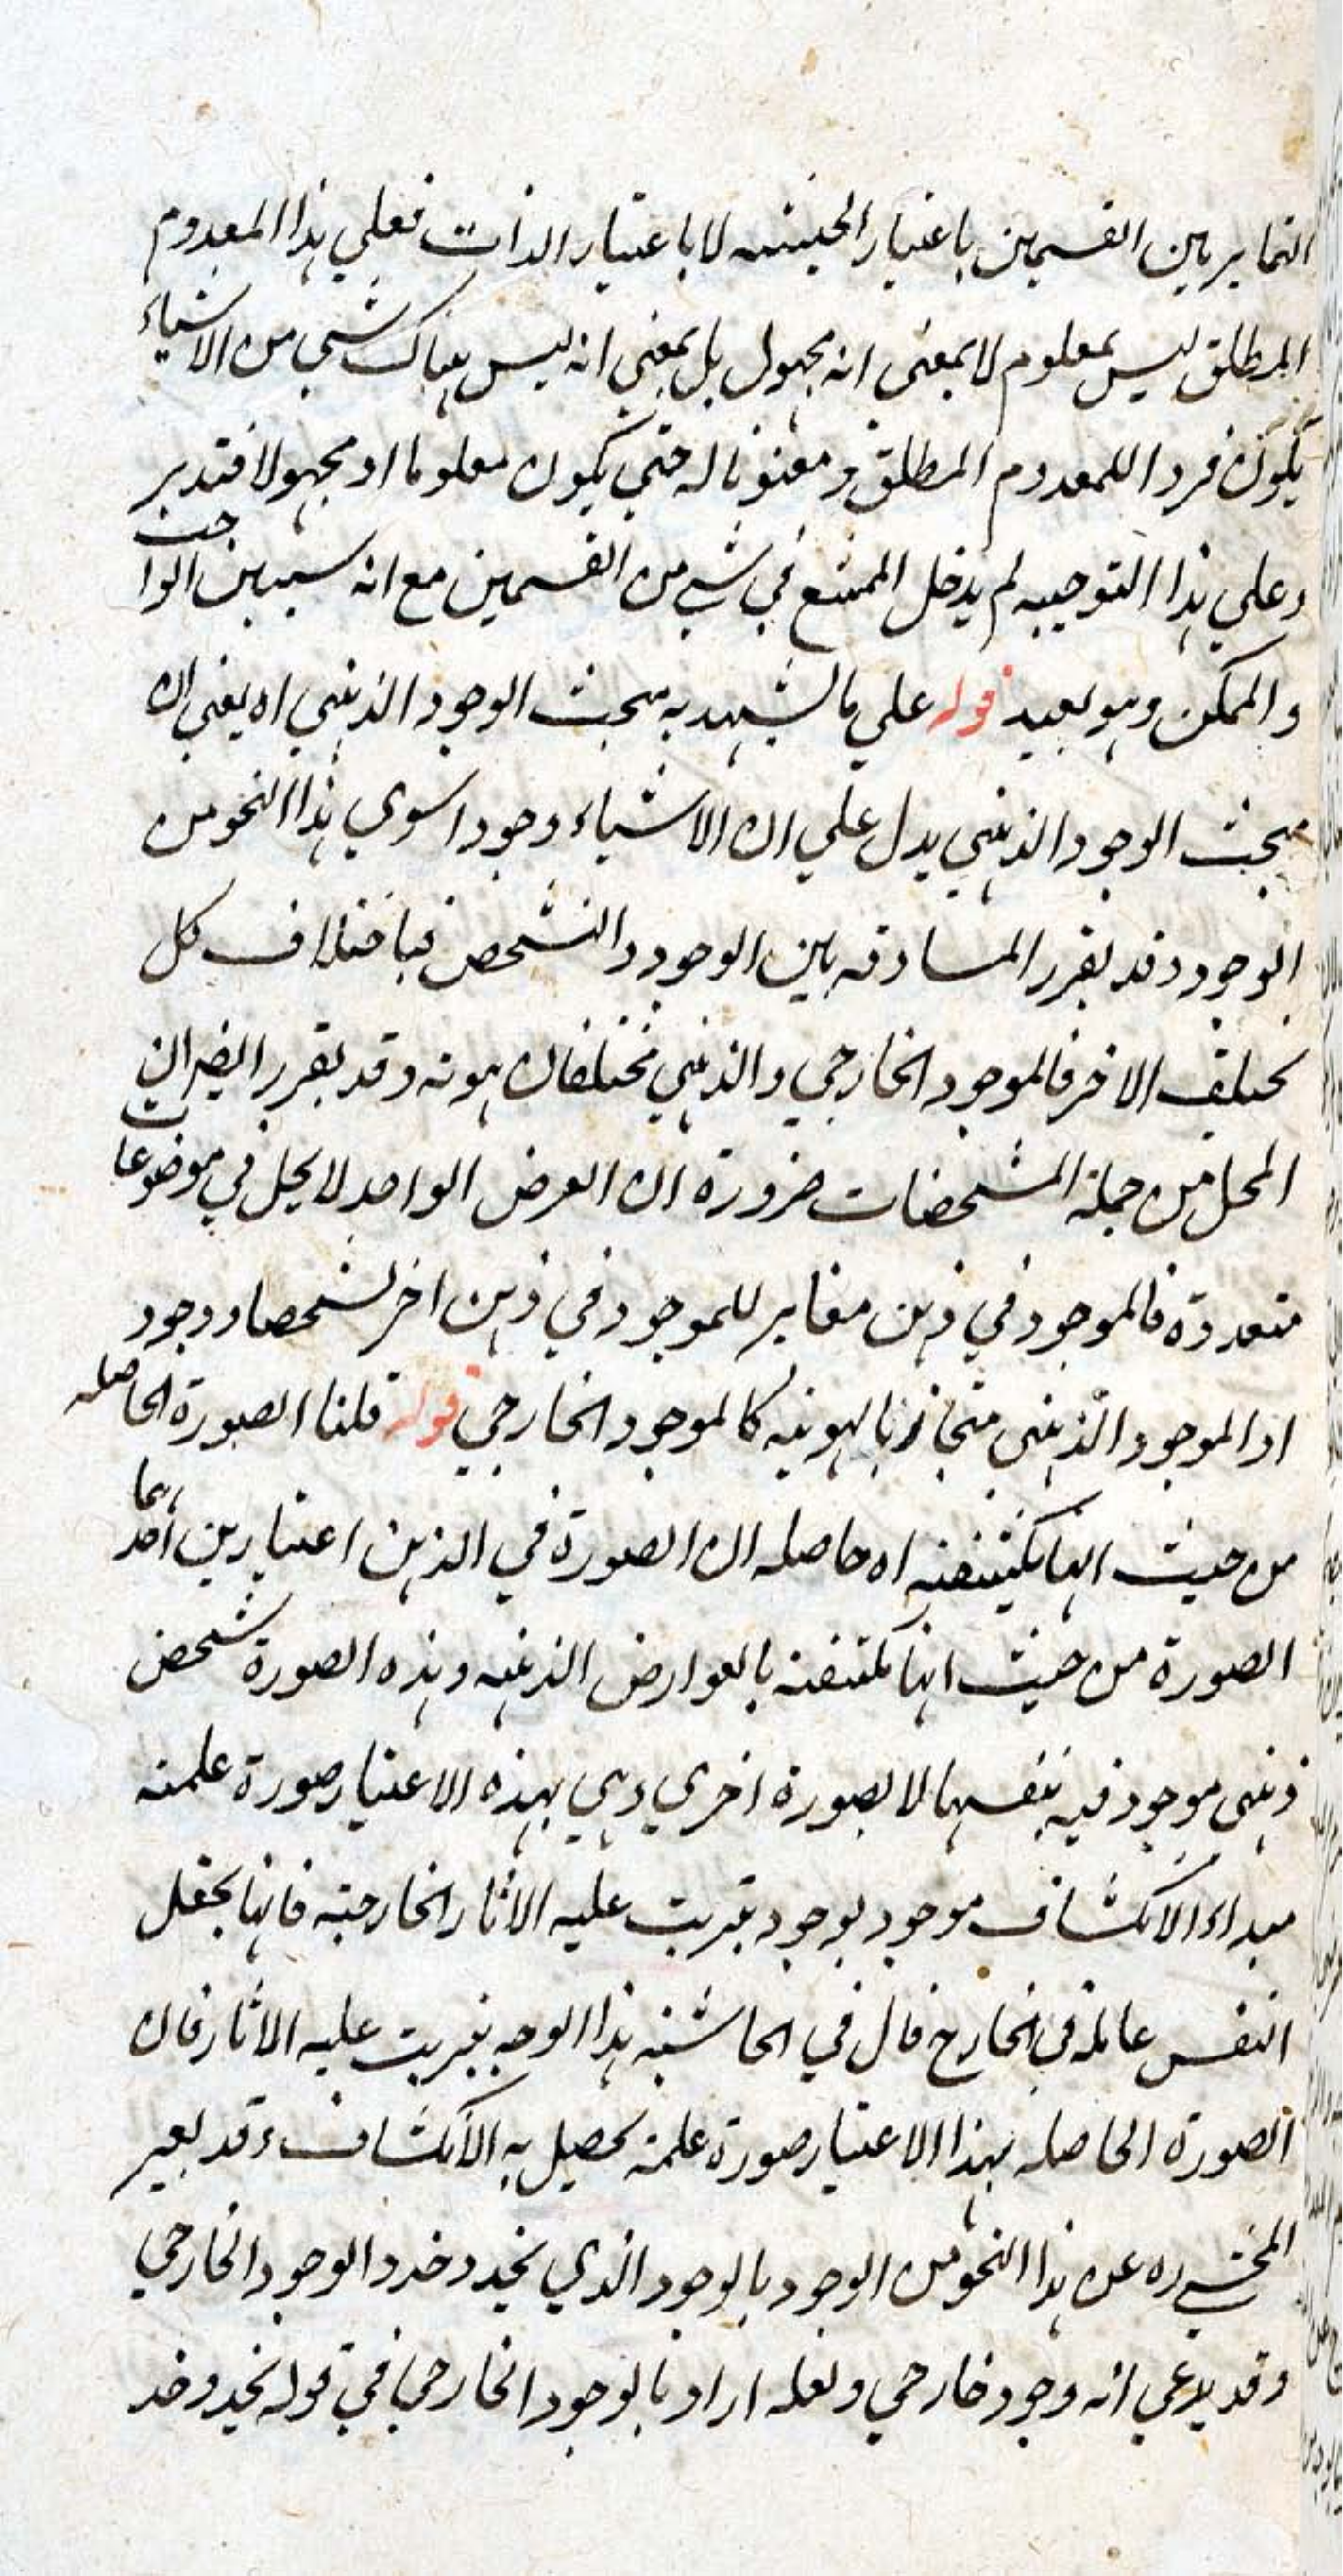 التمايز بين القسمين باعتبار الحيثيه لا باعتبار الذات فعلي هذا المعدوم
المطلق ليس بمعلوم لا بمعنى انه مجهول بل بمعنى انه ليس هناك شي من الاشياء
يكون فردا للمعدوم المطلق ومعنونا له حتى يكون معلوما او مجهولا فتدبر
وعلي هذا التوجيه لم يدخل الممتنع في شي من القسمين مع انه سيباين الواجب
والممكن وهو بعيد قوله علي ما يشهد به مبحث الوجود الذهني اه يعني ان
مبحث الوجود الذهني يدل علي ان الاشياء وجودا سوي هذا النحو من
الوجود وقد تقرر المساوقه بين الوجود والتشخص فباختلاف كل
يختلف الاخر فالموجود الخارجي والذهني مختلفان هوية وقد تقرر ايضا ان
المحل من جملة المشخصات ضرورة ان العرض الواحد لا يحل في موضوعات
متعددة فالموجود في ذهن مغاير للموجود في ذهن اخر تشخصا ووجود
ا والموجود الذهني منحاز بالهويه كالموجود الخارجي قوله قلنا الصورة الحاصله
من حيث انها مكتنفة اه حاصله ان الصورة في الذهن اعتبارين احدهما
الصورة من حيث انها مكتنفة بالعوارض الذهنيه وهذه الصورة شخص
ذهني موجود فيه بنفسها لا بصورة اخري وهي بهذه الاعتبار صورة علمية
مبداء الانكشاف موجود بوجود يترتب عليه الاثار الخارجية فانها تجعل
النفس عالمة في الخارج قال في الحاشية هذا الوجه يترتب عليه الاثار فان
الصورة الحاصله بهذا الاعتبار صورة علمية يحصل به الانكشاف وقد يعبر
المحشي ره عن هذا النحو من الوجود بالوجود الذي يحذو حذو الوجود الخارجي
وقد يدعي انه وجود خارجي ولعله اراد بالوجود الخارجي في قوله يحذو حذ